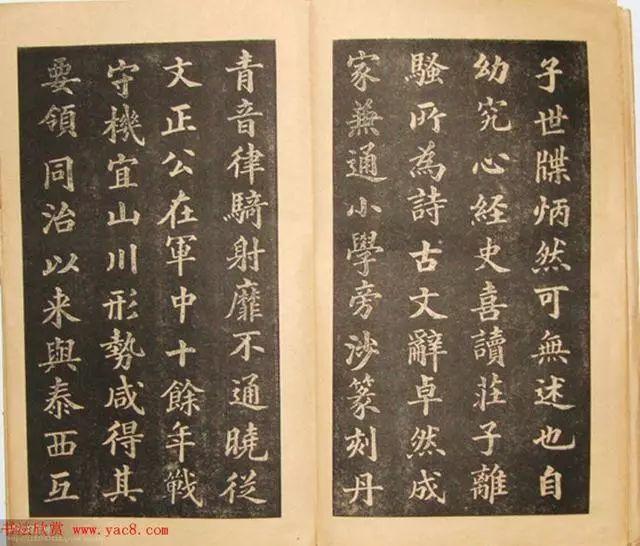 子世牒炳然可無述也自
幼究心經史喜讀莊子離
騷所為詩古文辭卓然成
家兼通小學旁涉篆刻丹
青音律騎射靡不通曉從
文正公在軍中十餘年戰
守機宜山川形勢咸得其
要領同治以来與泰西互
书法欣赏 www.yac8.com